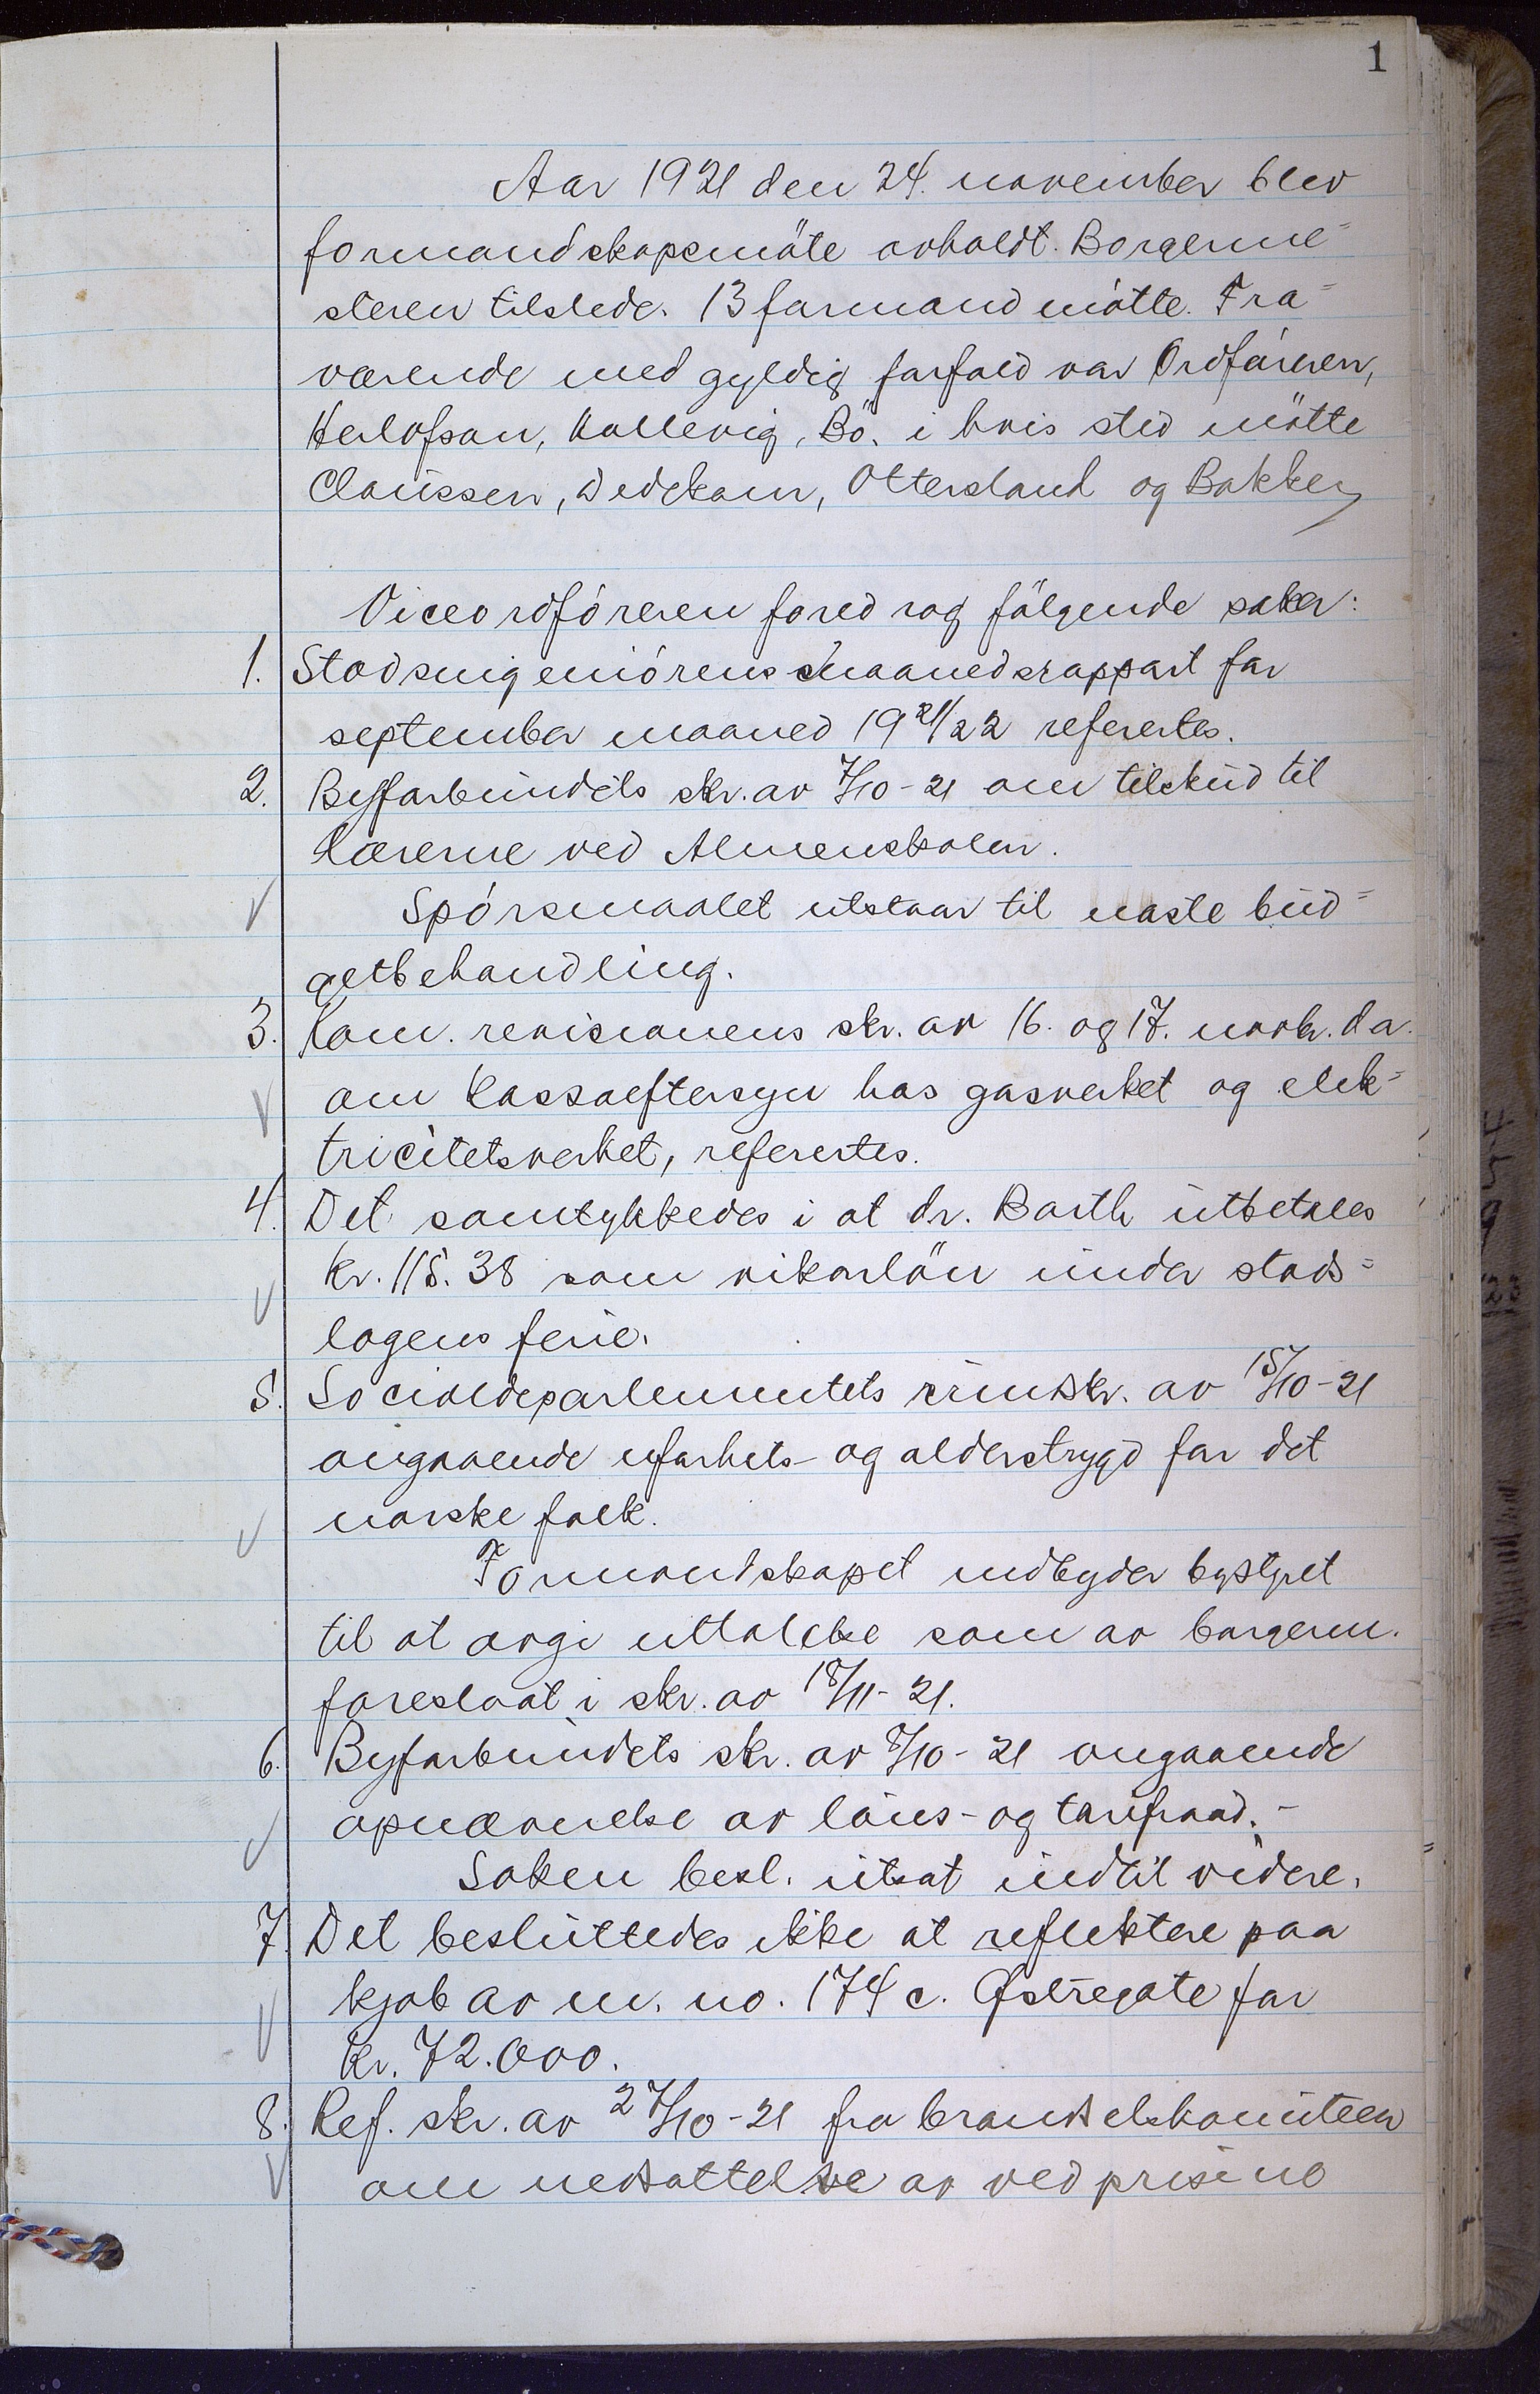 1
Aar 1921 den 24. november blev
formandskapsmöte avholdt. Borgerme=
steren tilstede. 13 formænd mötte. Fra=
værende med gyldig forfald var Ordföreren,
Herlofson, Kallevig, Bö. i hvis sted mötte
Claussen, Dedekam, Ottersland og Bakke,
Viceordföreren foredrog fölgende saker:
1. Stadsingeniörens maanedsrapport for
september maaned 1921/22 refertes.
2. Byforbundets skr. av 7/10-21 om tilskud til
lærerne ved Almenskolen.
Spörsmaalet utstaar til næste bud=
getbehandling.
3. Kom. revisionens skr. av 16. og 17. novbr. d.a.
om kassaeftersyn hos gasverket og elek=
tricitetsverket, refertes.
4. Det samtykkedes i at dr. Barth utbetales
kr. 115.38 som vikarlön under stads=
lægens ferie.
5. Socialdepartementets rundskr. av 15/10-21
angaaende uførhets- og alderstrygd for det
norske folk.
Formandskapet indbyder bystyret
til at avgi uttalelse som av borgerm.
foreslaat i skr. av 18/11-21.
6. Byforbundets skr. av 8/10-21 angaaende
opnævnelse av löns- og tarifraad.-
Saken besl. utsat indtil videre.
7. Det besluttedes ikke at reflektere paa
kjøb av m. no. 174 c. Østregate for
kr. 72.000.
8. Ref. skr. av 27/10-21 fra brændselskomiteen
om nedsættelse av vedprisene